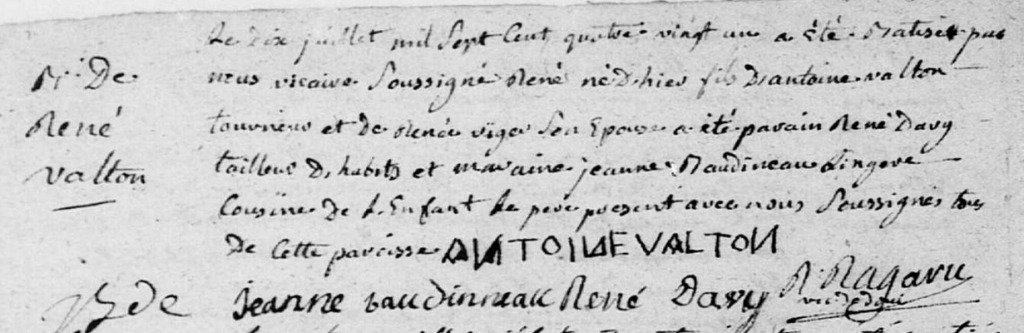 Le dix juillet mil Sept Cent quatre vingt un a été Batisé par
B. De
nous vicaire Soussigné René né d'hier fils D'antoine valton
René
tourneur et de Renée viger Son Epouse a été parain René Davy
valton
tailleur D'habits et maraine jeanne Baudineau Lingere
Cousine De L'Enfant Le pere present avec nous Soussignés tous
De Cette paroisse ANTOINE VALTON
B de jeanne baudinneau René Davy R. Ragaru